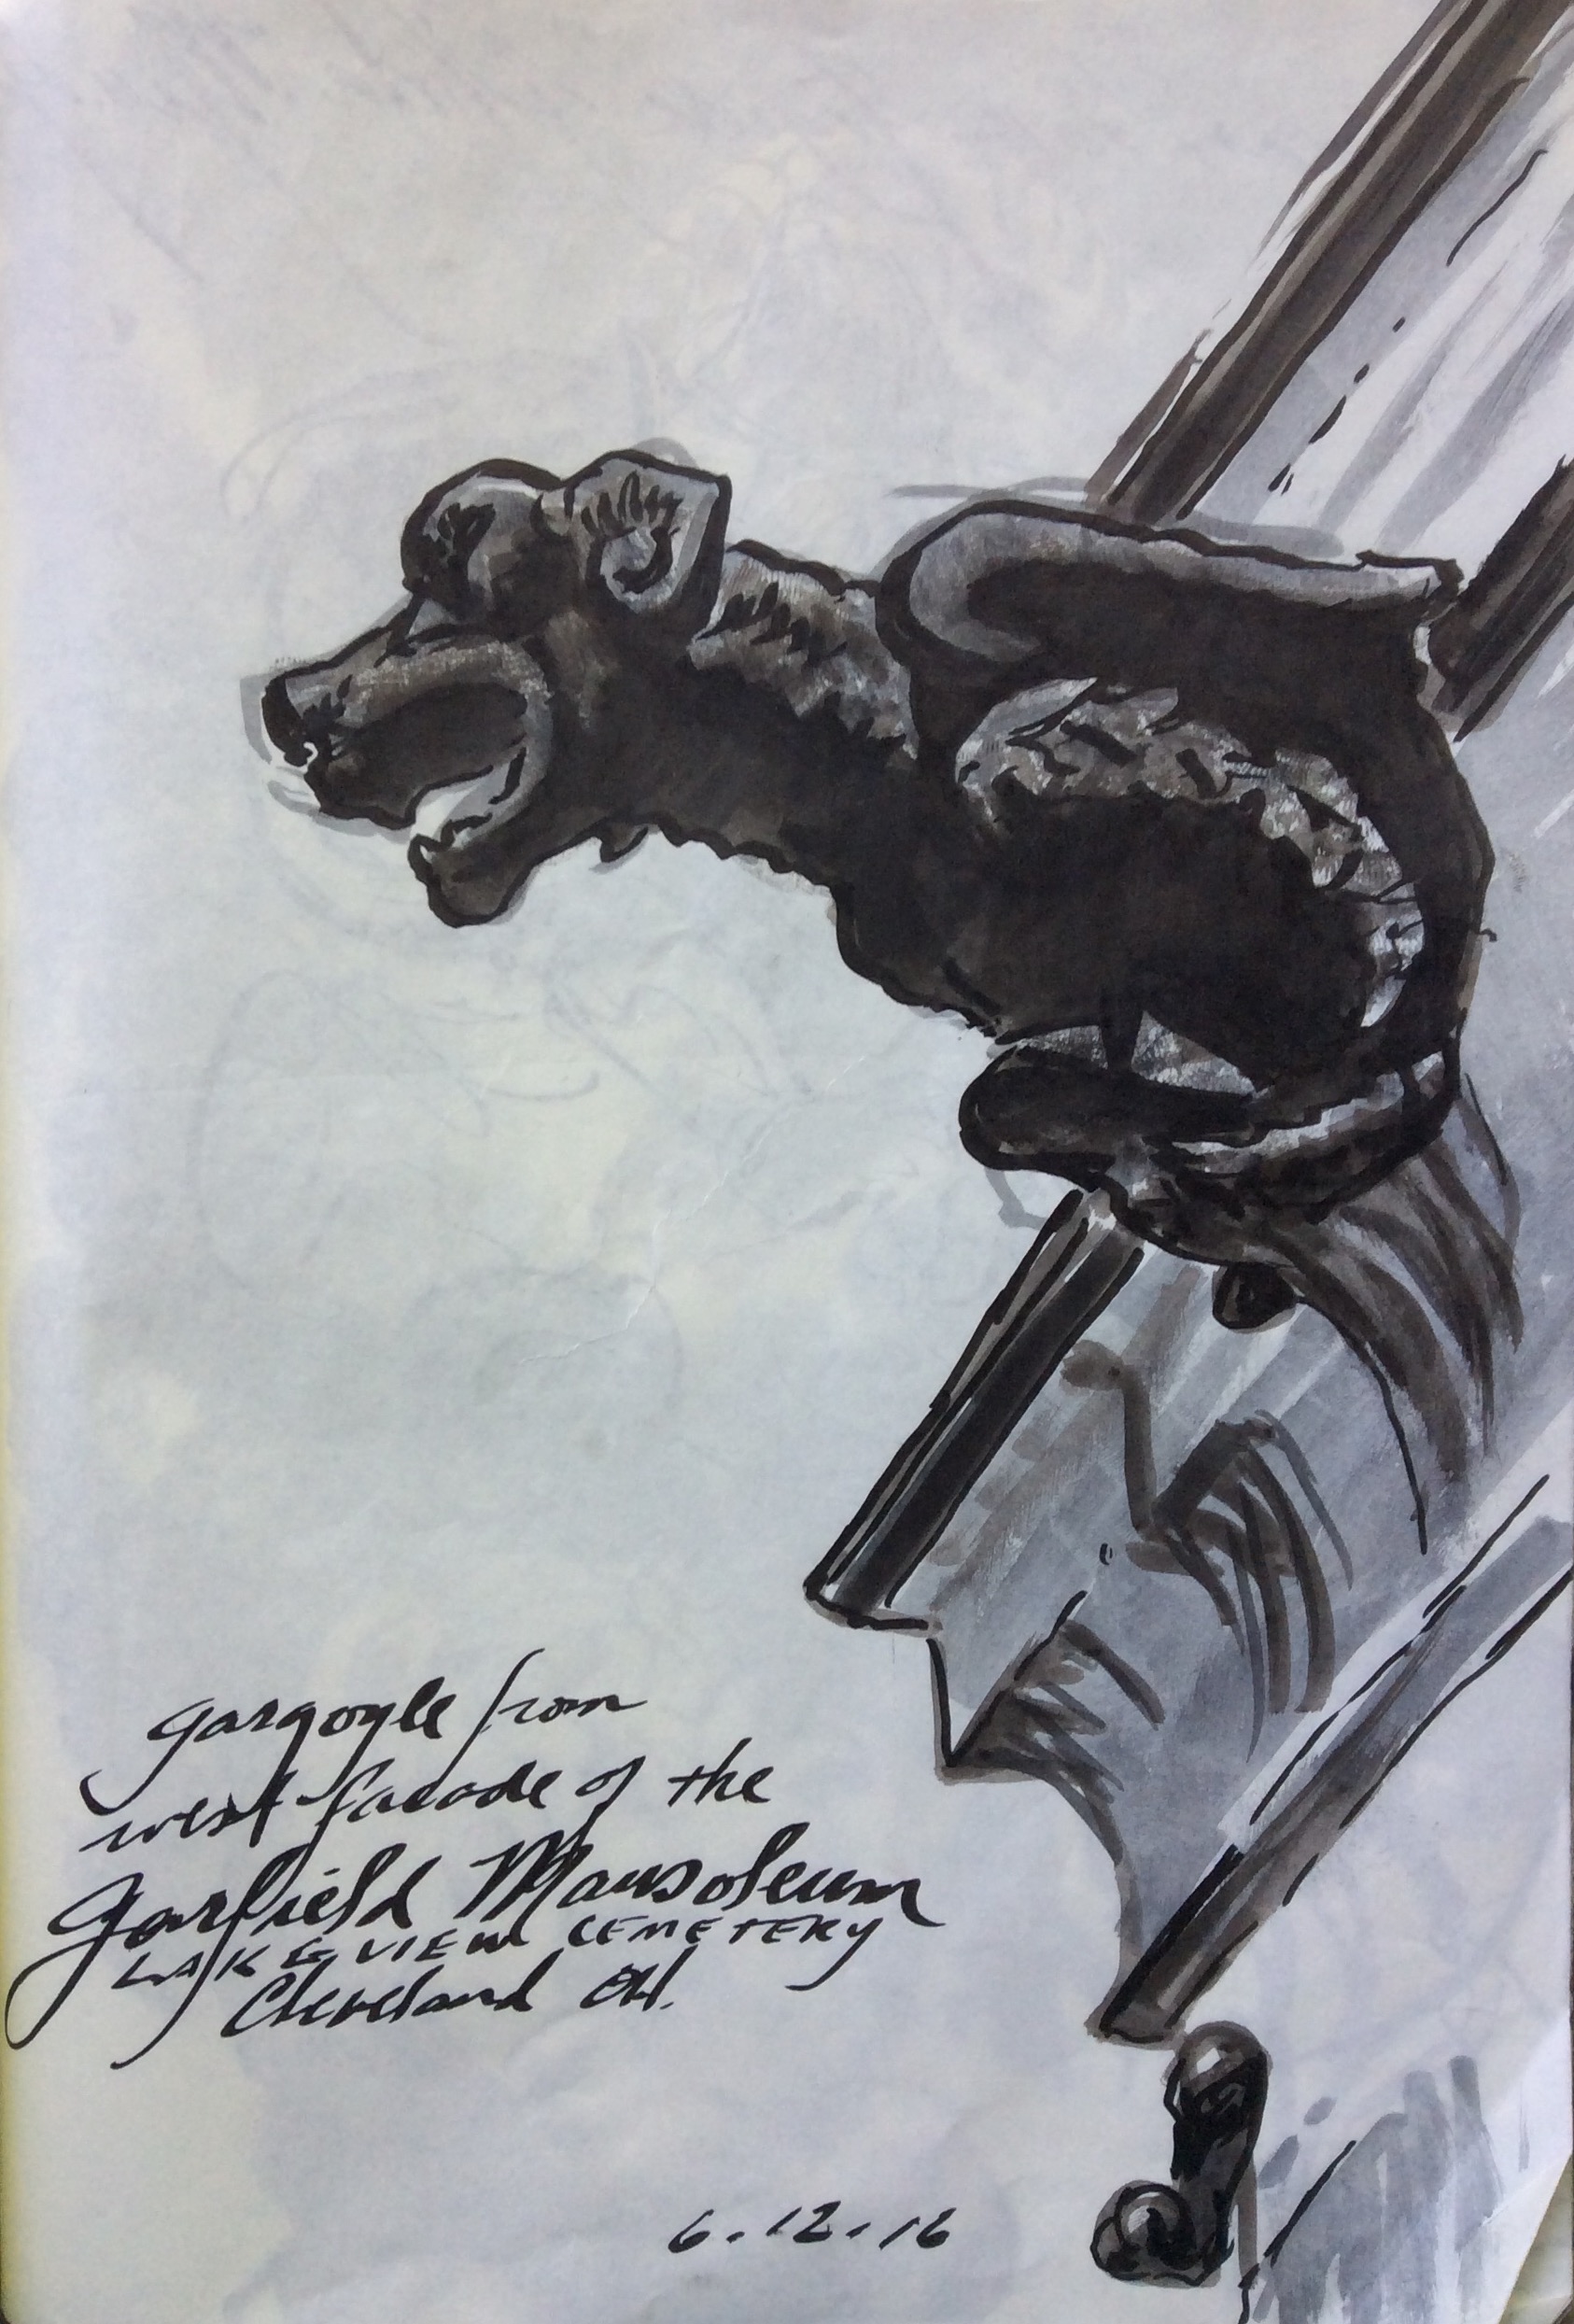 gargoyle from
west facade of the
Garfield Mausoleum
LAKEVIEW CEMETERY
Cleveland OH.
6.12.16